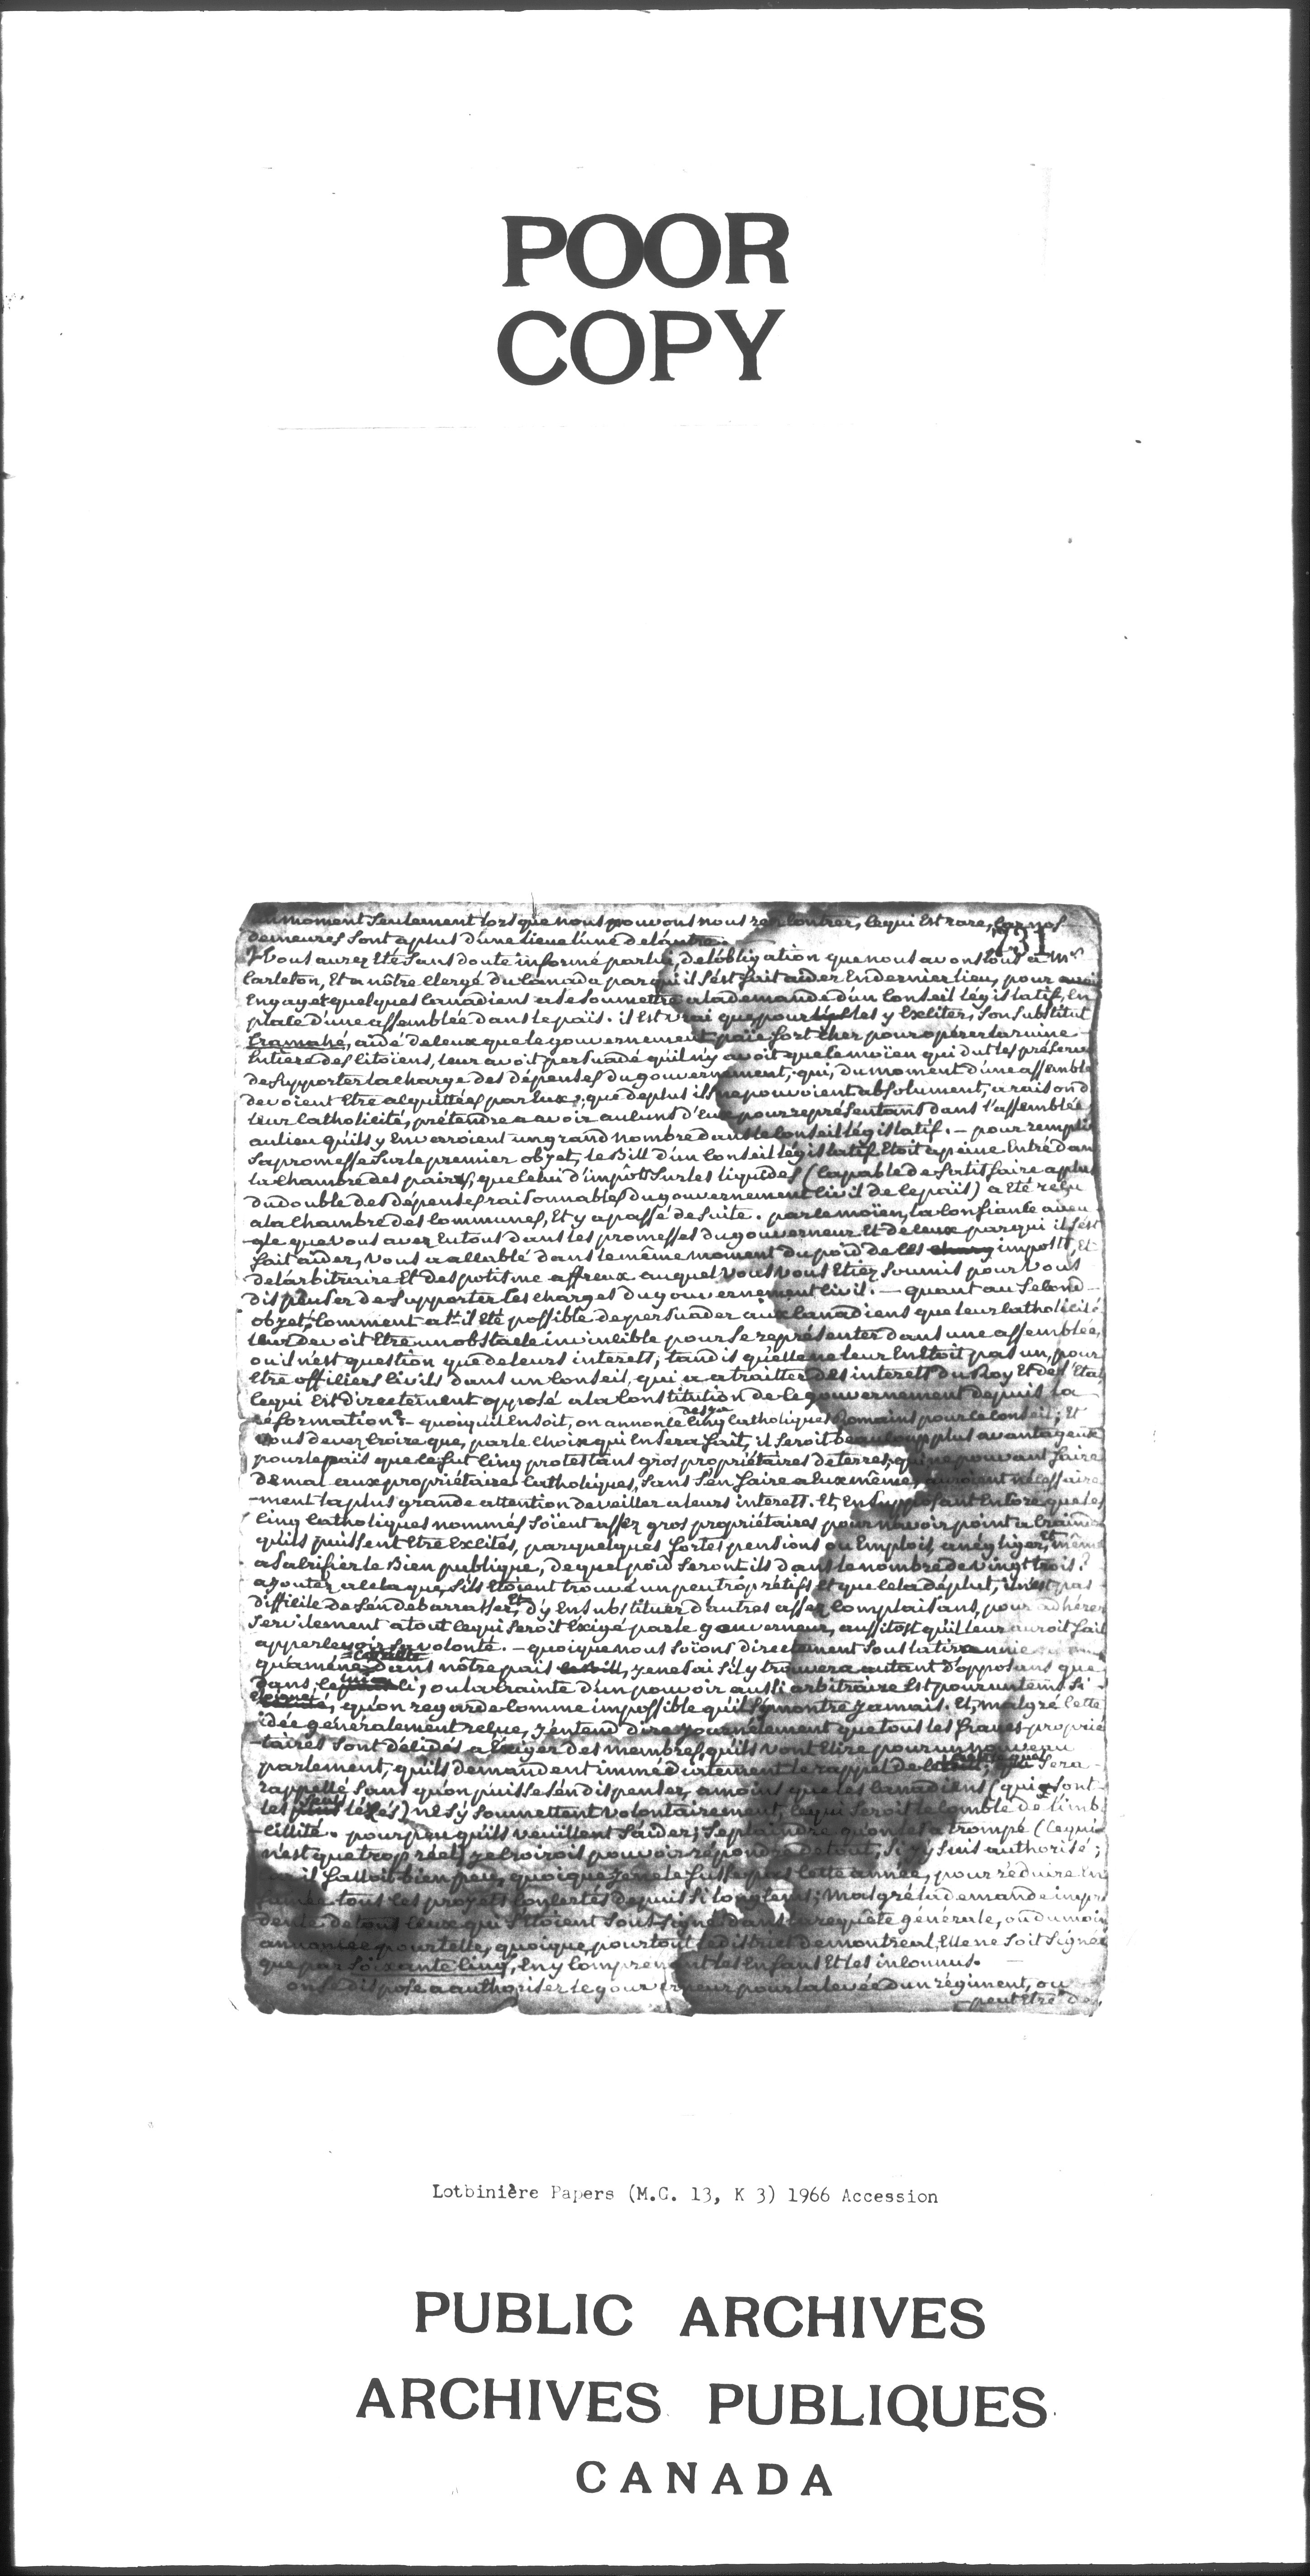 POOR
COPY
731
moment seulement lorsque nous pouvons nous rencontrer, ce qui est rare, car nos
demeures sont a plus d'une lieue l'une de l'autre.
Vous aurez été sans doute informé par lui, de l'obligation que nous avons tous a Mr
Carleton, et a nôtre clergé du Canada par qui il s'est fait aider en dernier lieu, pour avoir
engagé quelques Canadiens a se soumettre a la demande d'un Conseil législatif, en
place d'une assemblée dans le païs. il est vrai que pour les y exciter, son substitut
Cramahé, aidé de ceux que le gouvernement paie fort cher pour opérer la ruine
entiere des citoïens, leur avoit persuadé qu'il n'y avoit que ce moïen qui dut les préserver
de supporter la charge des dépenses du gouvernement, qui, du moment d'une assemblé
devoient etre acquittées par eux; que de plus ils ne pouvoient absolument, a raison d
leur catholicité, prétendre a avoir aucuns d'eux pour représentans dans l'assemblée,
au lieu qu'ils y en verroient un grand nombre dans le conseil législatif. – pour remplir
sa promesse sur le premier objet, le Bill d'un conseil législatif etoit a peine entré dans
la chambre des pairs, que celui d'impôts sur les liquides (capable de satisfaire a plus
du double des dépenses raisonnables du gouvernement civil de ce païs) a eté reçu
a la chambre des communes, et y a passé de suite. par ce moïen, la confiance aveu
-gle que vous avez eu tous dans les promesses du gouverneur et de ceux par qui il s'est
fait aider, vous a accablé dans le même moment du poid de ces impots, et
de l'arbitraire et despotisme affreux auquel vous vous etiez soumis pour vous
dispenser de supporter les charges du gouvernement civil. – quant au second
objet, comment a-t-il eté possible de persuader aux Canadiens que leur catholicité
leur devoit etre un obstacle invincible pour se représenter dans une assemblée,
ou il n'est question que de leurs interets; tandis qu'elle ne leur en etoit pas un, pour
etre officiers civils dans un conseil, qui a a traitter des interets du Roy et de l'Etat
ce qui est directement opposé a la constitution de ce gouvernement depuis la
réformation? – quoiqu'il en soit, on annonce cinq catholiques Romains pour le conseil; et
vous devez croire que, par le choix qui en sera fait, il seroit beaucoup plus avantageux
pour le païs que ce fut cinq protestans gros propriétaires de terres, qui ne pouvant faire
de mal aux propriétaires catholiques, sans s'en faire a eux même, auroient nécessaire
-ment la plus grande attention de veiller a leurs interets. et, en supposant encore que les
cinq catholiques nommés soïent assez gros propriétaires pour n'avoir point a craindre
qu'ils puissent etre excités, par quelques fortes pensions ou emplois, a négliger, et même
a sacrifier le Bien publique, de quel poid seront ils dans le nombre de vingt trois?
ajoutez a cela que, s'ils etoient trouvé un peu trop rétifs et que cela déplut, il n'est pas
difficile de s'en debarrasser, et d'y en substituer d'autres assez complaisans, pour adhérer
servilement a tout ce qui seroit exigé par le gouverneur, aussitost qu'il leur auroit fait
appercevoir sa volonté. – quoique nous soïons directement sous la tirannie
qu'améne dans nôtre païs, je ne sai s'il y trouvera autant d'opposans que
dans celui ci, ou la crainte d'un pouvoir aussi arbitraire est pour un tems si
eloigné, qu'on regarde comme impossible qu'il s'y montre jamais. et, malgré cette
idée généralement reçue, j'entend dire journélement que tous les francs-proprié
-taires sont décidés a exiger des membres, qu'ils vont elire pour un nouveau
parlement, qu'ils demandent immédiatement le rappel de sera
rappellé sans qu'on puisse s'en dispenser, a moins que les Canadiens (qui sont
les seuls lézés) ne s'y soumettent volontairement, ce qui seroit le comble de l'imbé
-cillité. pour peu qu'ils veuillent s'aider; se plaindre qu'on les a trompé (ce qui
n'est que trop réel) je croirois pouvoir répondre de tout, si j'y suis authorisé;
il falloit bien peu, quoique je ne le fusse pas cette année, pour réduire en
fumée tous les projets concertés depuis si longtems; malgré la demande impru
dente de tous ceux qui s'etoient sous-signé dans la requête générale, ou du moin
annoncée pour telle, quoique, pour tout le district de montreal, elle ne soit signée
que par soixante cinq, en y comprenant les enfans et les inconnus.
on se dispose a authoriser le gouverneur pour la levée d'un régiment, ou
peut etre de
Lotbinière Papers (M.G. 13, K 3) 1966 Accession
PUBLIC ARCHIVES
ARCHIVES PUBLIQUES
CANADA